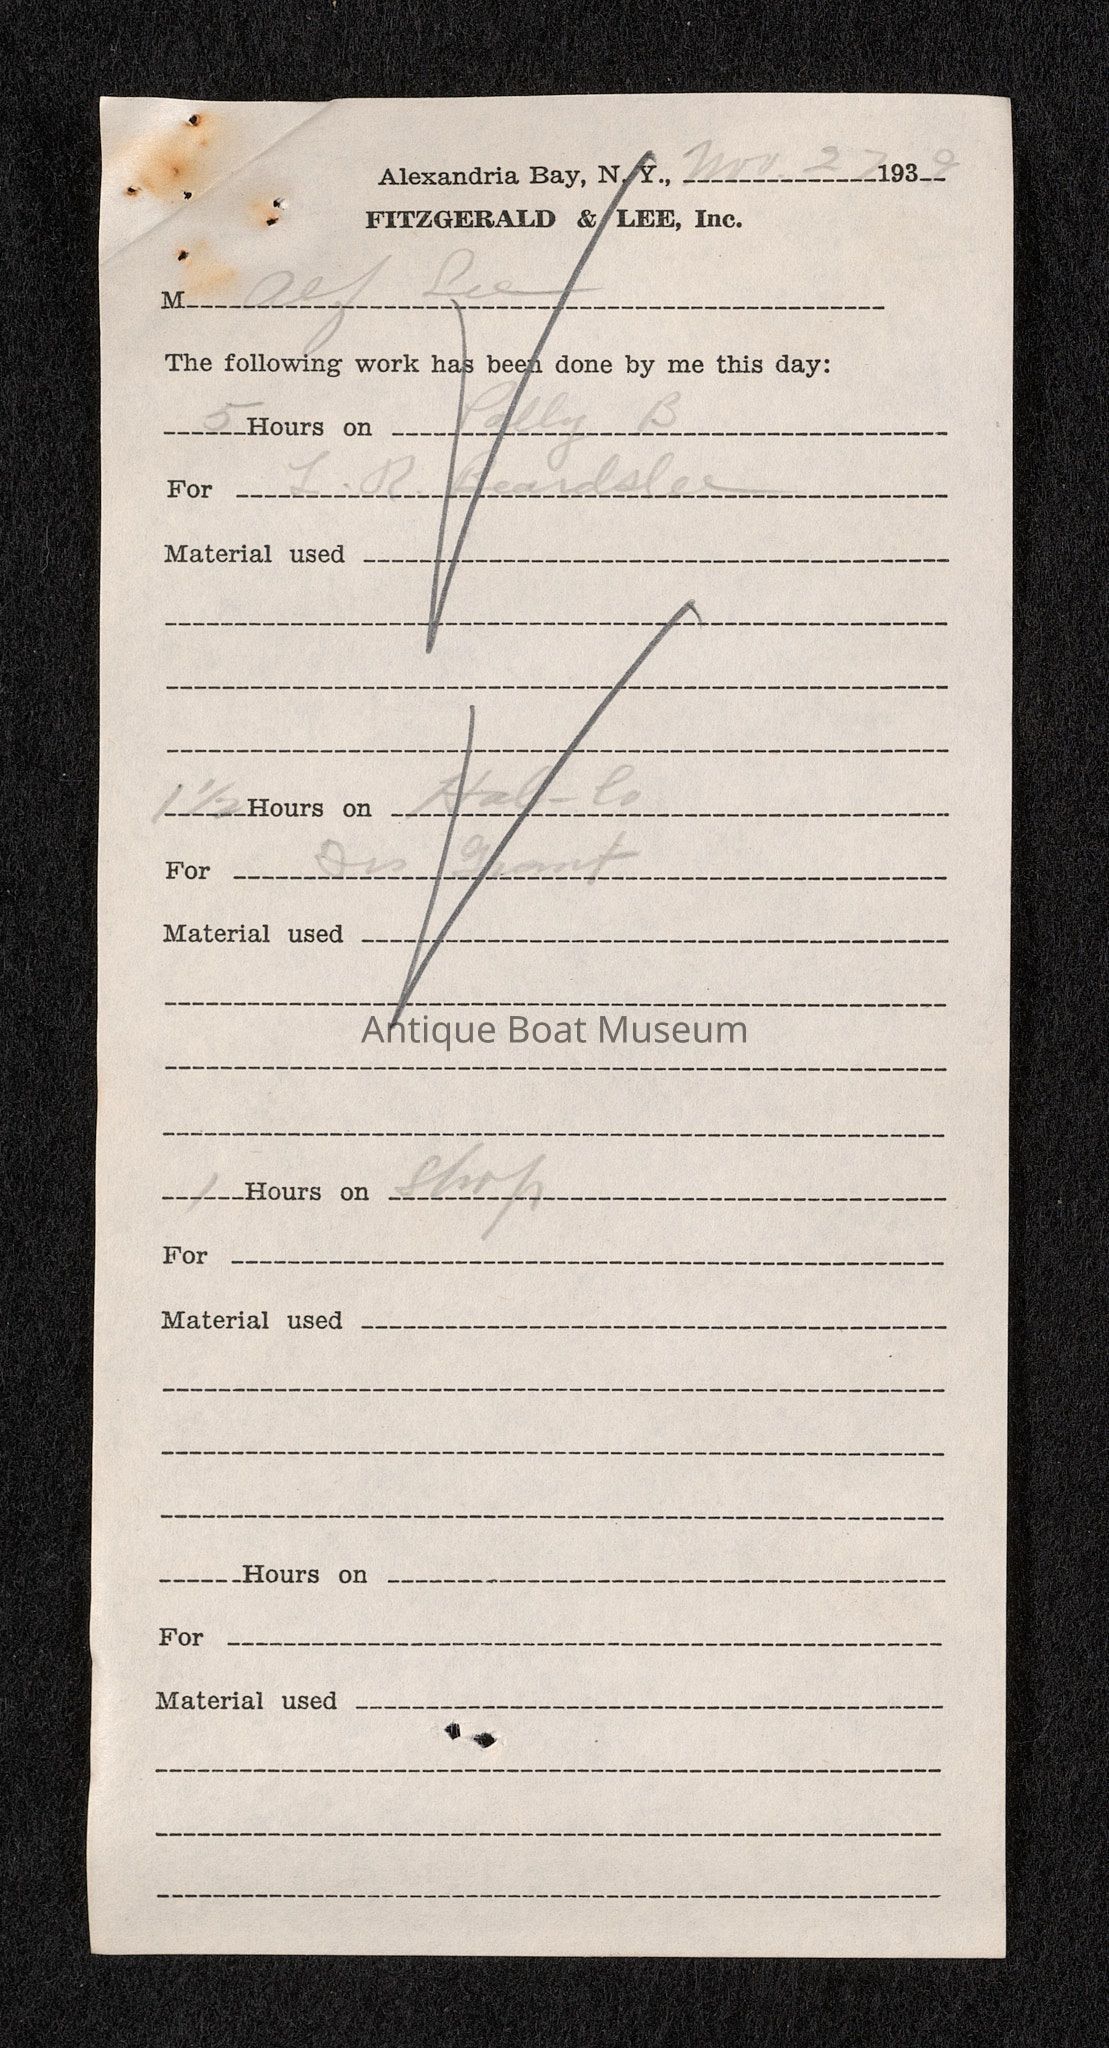 Alexandria Bay, N. Y., Nov. 27 1939
FITZGERALD & LEE, Inc.
M Alf Lee
The following work has been done by me this day:
5 Hours on Polly B
For L. R. Beardslee
Material used
1 1/2 Hours on Hab-
For Grant
Material used
Antique Boat Museum
1 Hours on Shop
For
Material used
Hours on
For
Material used